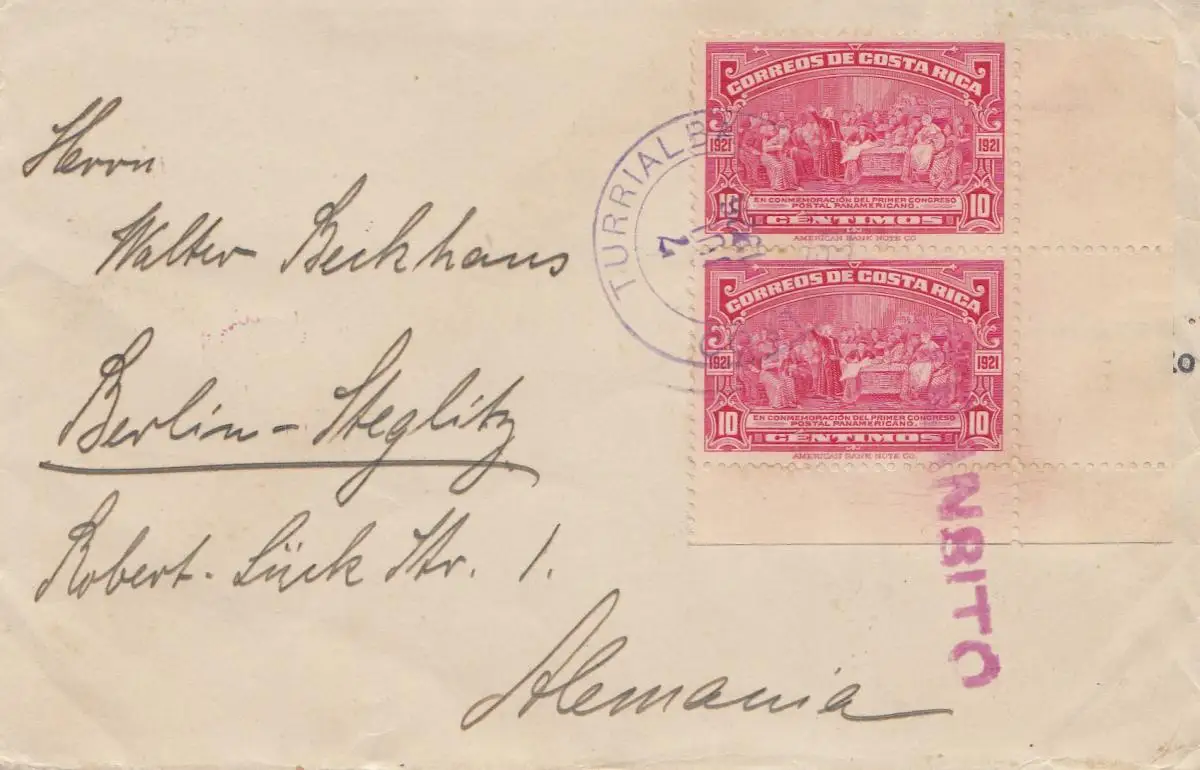 Herrn
Walter Beckhaus
Berlin-Steglitz
Robert-Lück Str. 1.
Alemania
CORREOS DE COSTA RICA
1921 1921
EN CONMEMORACIÓN DEL PRIMER CONGRESO
POSTAL PANAMERICANO.
10 CÉNTIMOS 10
AMERICAN BANK NOTE CO.
CORREOS DE COSTA RICA
1921 1921
EN CONMEMORACIÓN DEL PRIMER CONGRESO
POSTAL PANAMERICANO.
10 CÉNTIMOS 10
AMERICAN BANK NOTE CO.
TURRIALBA
2